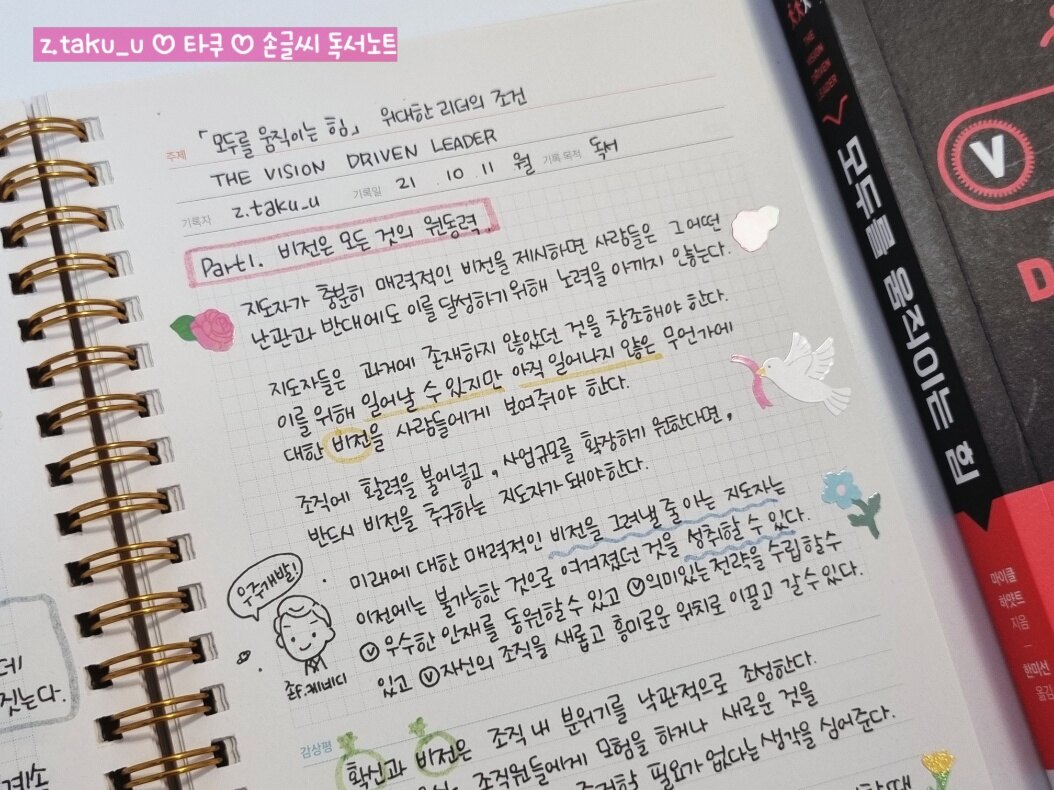 z.taku_u ♡ 타쿠 ♡ 손글씨 독서노트
주제 「모두를 움직이는 힘」 위대한 리더의 조건
THE VISION DRIVEN LEADER
기록자 z.taku_u 기록일 21 . 10 . 11 월 기록 목적 독서
Part1. 비전은 모든 것의 원동력
지도자가 충분히 매력적인 비전을 제시하면 사람들은 그 어떤
난관과 반대에도 이를 달성하기 위해 노력을 아끼지 않는다.
지도자들은 과거에 존재하지 않았던 것을 창조해야 한다.
이를 위해 일어날 수 있지만 아직 일어나지 않은 무언가에
대한 비전을 사람들에게 보여줘야 한다.
조직에 활력을 불어넣고, 사업규모를 확장하기 원한다면,
반드시 비전을 추구하는 지도자가 돼야한다.
· 미래에 대한 매력적인 비전을 그려낼 줄 아는 지도자는
이전에는 불가능한 것으로 여겨졌던 것을 성취할 수 있다.
ⓥ우수한 인재를 동원할 수 있고 ⓥ의미있는 전략을 수립할수
있고 ⓥ자신의 조직을 새롭고 흥미로운 위치로 이끌고 갈 수 있다.
우주개발!
존F.케네디
감상평
확신과 비전은 조직 내 분위기를 낙관적으로 조성한다.
조직원들에게 모험을 하거나 새로운 것을
필요가 없다는 생각을 심어준다.
할때
짓는다.
계속
THE VISION DRIVEN LEADER
모두를 움직이는 힘
마이클 하얏트 지음
한미선 옮김
V
D